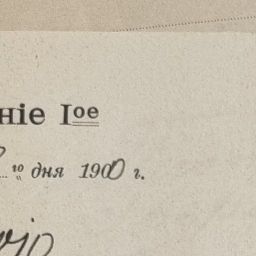 ніе Iое
го дня 1900 г.